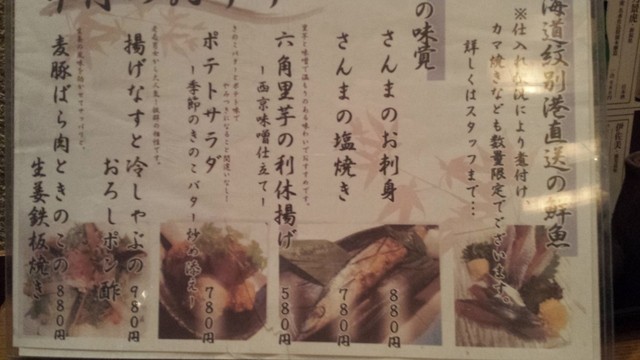 海道紋別港直送の鮮魚
※仕入れ状況により煮付け、
カマ焼きなども数量限定でございます。
詳しくはスタッフまで…
の味覚
さんまのお刺身 880円
さんまの塩焼き 780円
六角里芋の利休揚げ 580円
ー西京味噌仕立てー
ポテトサラダ 780円
ー季節のきのこバター炒め添えー
揚げなすと冷しゃぶの
おろしポン酢 980円
麦豚ばら肉ときのこの
生姜鉄板焼き 880円